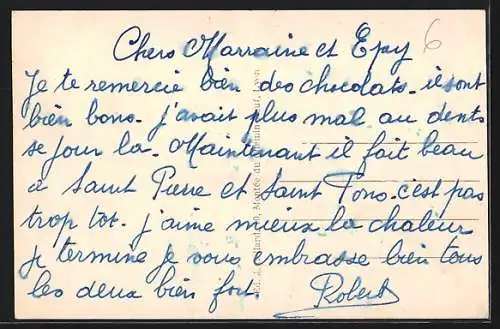 Chers Marraine et Epey 6
Je te remercie bien des chocolats. ils sont
bien bons. j'avait plus mal au dents
se jour la. Maintenant il fait beau
a Saint Pierre et Saint Pons. c'est pas
trop tot. j'aime mieux la chaleur
je termine je vous embrasse bien tous
les deux bien fort. Robert